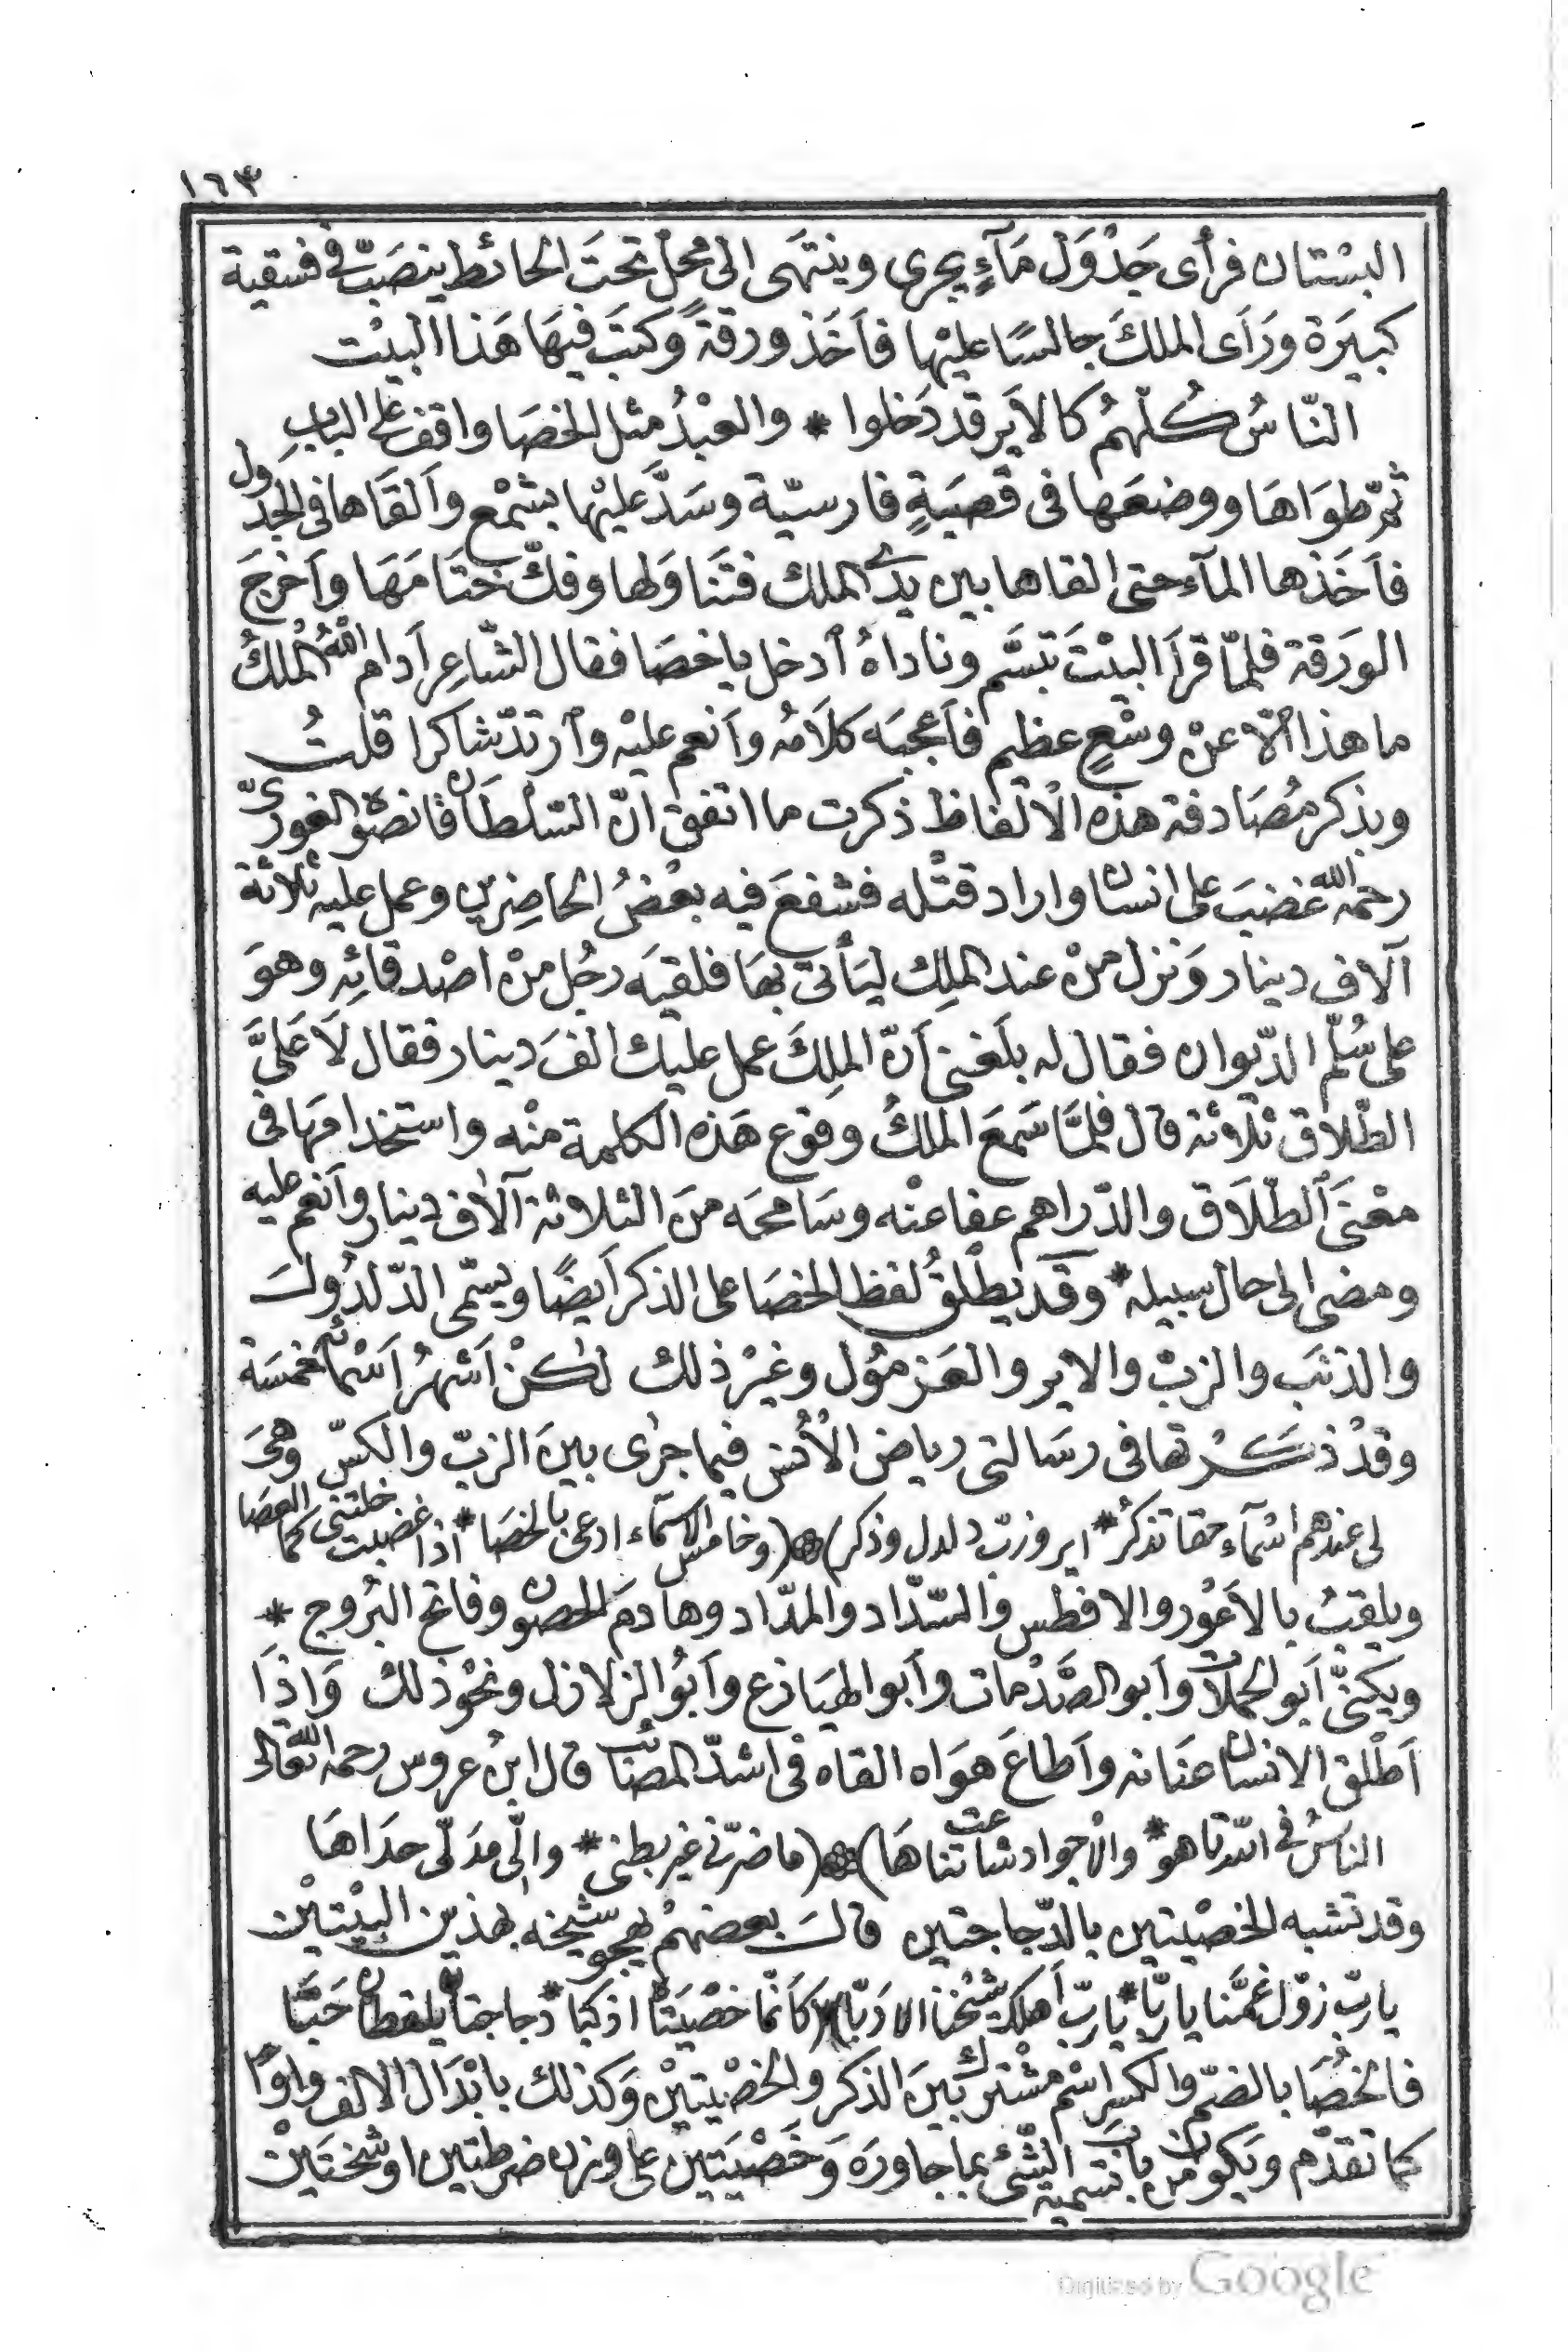 ١٦٣
البسْتان فرأى جَدْوَل مَآءٍ يجرى وينتَهَى الى محلّ تحتَ الحائط ينصَبّ فى فسقية
كبيرَة ورَأى الملكَ جالسًا عليْها فأخَذ ورقةً وكتَبَ فيهَا هَذا البيْت
النّاسُ كُلّهمُ كالايَر قد دَخلوا * والعبْدُ مثل الخصَا واقف على البابِ
ثمّ طوَاهَا ووضعَها فى قصبَةٍ فارسيّة وسَدَّ عليْها بشمْع وألقَاها فى الجدْول
فأخَذها المآء حتى القاها بين يدَى الملك فتَنَاولها وفكّ ختَامَهَا وأخرجَ
الورَقة فلمّا قرأ البيْتَ تبسَّم وناداهُ أدخل يا خصَا فقال الشّاعِر أدام اللّهُ الملكُ
ما هذا الّا عنْ وسْعٍ عظيم فأعْجبَه كلَامُه وأنعم عليْه وأرتدّ شاكرا قلتُ
وبذكر مُصَادفة هذه الألفاظ ذكرت ما اتفق انّ السّلطَان قانصْوة الغورىّ
رحمه الله غضبَ على انسان واراد قتْله فشفعَ فيه بعْضُ الحاضِرين وعمل عليه ثلاثة
آلاف دينار ونزل منْ عند الملِك ليَأتىَ بهَا فلقيَه رجُل منْ اصْدقائِه وهوَ
على سُلّم الدّيوان فقال له بلَغنى أنّ الملِكَ عمل عليك الفَ دينار فقال لَا عَلىَّ
الطّلاق ثلاثة قال فلمَّا سَمعَ الملكُ وقوع هَذه الكلمة منْه واستخدامَها فى
معْنَى ألطّلَاق والدّراهم عفا عنْه وسَامحَه منَ الثلاثة آلاف دينار وأنعم عليه
ومضى الى حال سبيله * وقَد يطْلقُ لفظ الخصَا على الذكر أيضًا ويسّمى الدّلدُول
والذنبَ والزبّ والاير والعَزموُل وغيرْ ذلك لكنْ أشهرُ أسْمائه خمسَة
وقدْ ذكرْتها فى رسَالتى رياض الأُنس فيما جرٰى بينَ الزبّ والكسّ وهىَ
لى عندهم اسْمآء حقا تذكرُ * اير وزبّ دلدل وذكر ) (وخامس الاسمّاء ادعى بالخصَا * اذا غضبت خلتنى كما العصا
ويلقبُ بالاعْور والافطس والسّدّاد والمدّاد وهادمَ الحصوْن وفاتح البُروج *
ويكنىّ أبو الحملات وأبو الصَّدْمات وأبو الهيَازع وأبُو الزلازل ونحْو ذلكْ وَاِذَا
أطْلق الانسان عنَانه وأطاعَ هوَاه القاه فى اشدّ المصَائب قال ابنُ عروس رحمه الله تعالى
الناسُ فى استر تاهو * والاجواد شاعت تناهَا ) (ما ضرّنى غير بطنى * والّى مدَلّى حدَاهَا
وقد تشبه الخصْيتين بالدّجاجتين قالَ بعضهمُ يهجو شيخه بهذين البيْتيْن
ياربّ زوّل غمَّنا ياربّا * ياربّ أهلك شيْخنا الادَبّا (كأنّما خصْيَتاه اذ كبا * دجاجتان يلقطان حَبّا
فالخصُا بالضمّ والكسر اسْم مشْترك بينَ الذكر والخصْيتيْن وكذلك بابْدَال الالف واوًا
كما تقدّم ويَكون من باب تسمية الشّئ بما جاورَه وَخَصْيَتَين على وزن ضرطتين او شخختَيْن
Digitized by Google